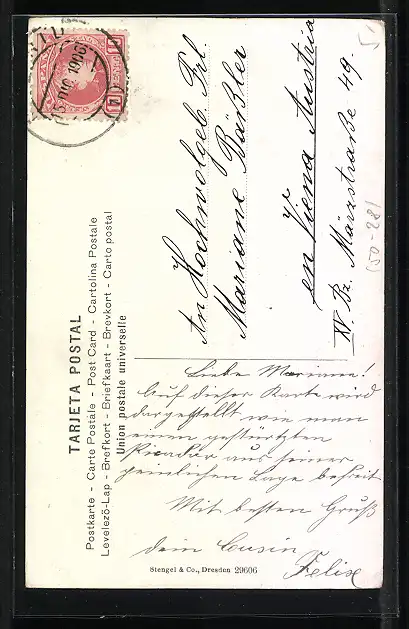 TARJETA POSTAL
Postkarte - Carte Postale - Post Card - Cartolina Postale
Levelezö-Lap - Brefkort - Briefkaart - Brevkort - Carto postal
Union postale universelle
10
10
1906
An Hochwolgeb. Frl.
Mariane Bäßler
en Viena Austria
XV Bz. Märzstraße 49.
(50-28)
Liebe Mariane!
Auf dieser Karte wird
dargestellt wie man
einen gestürtzten
Picador aus seiner
peinlichen Lage befreit
Mit besten Gruß
dein Cousin
Felix
Stengel & Co., Dresden 29606